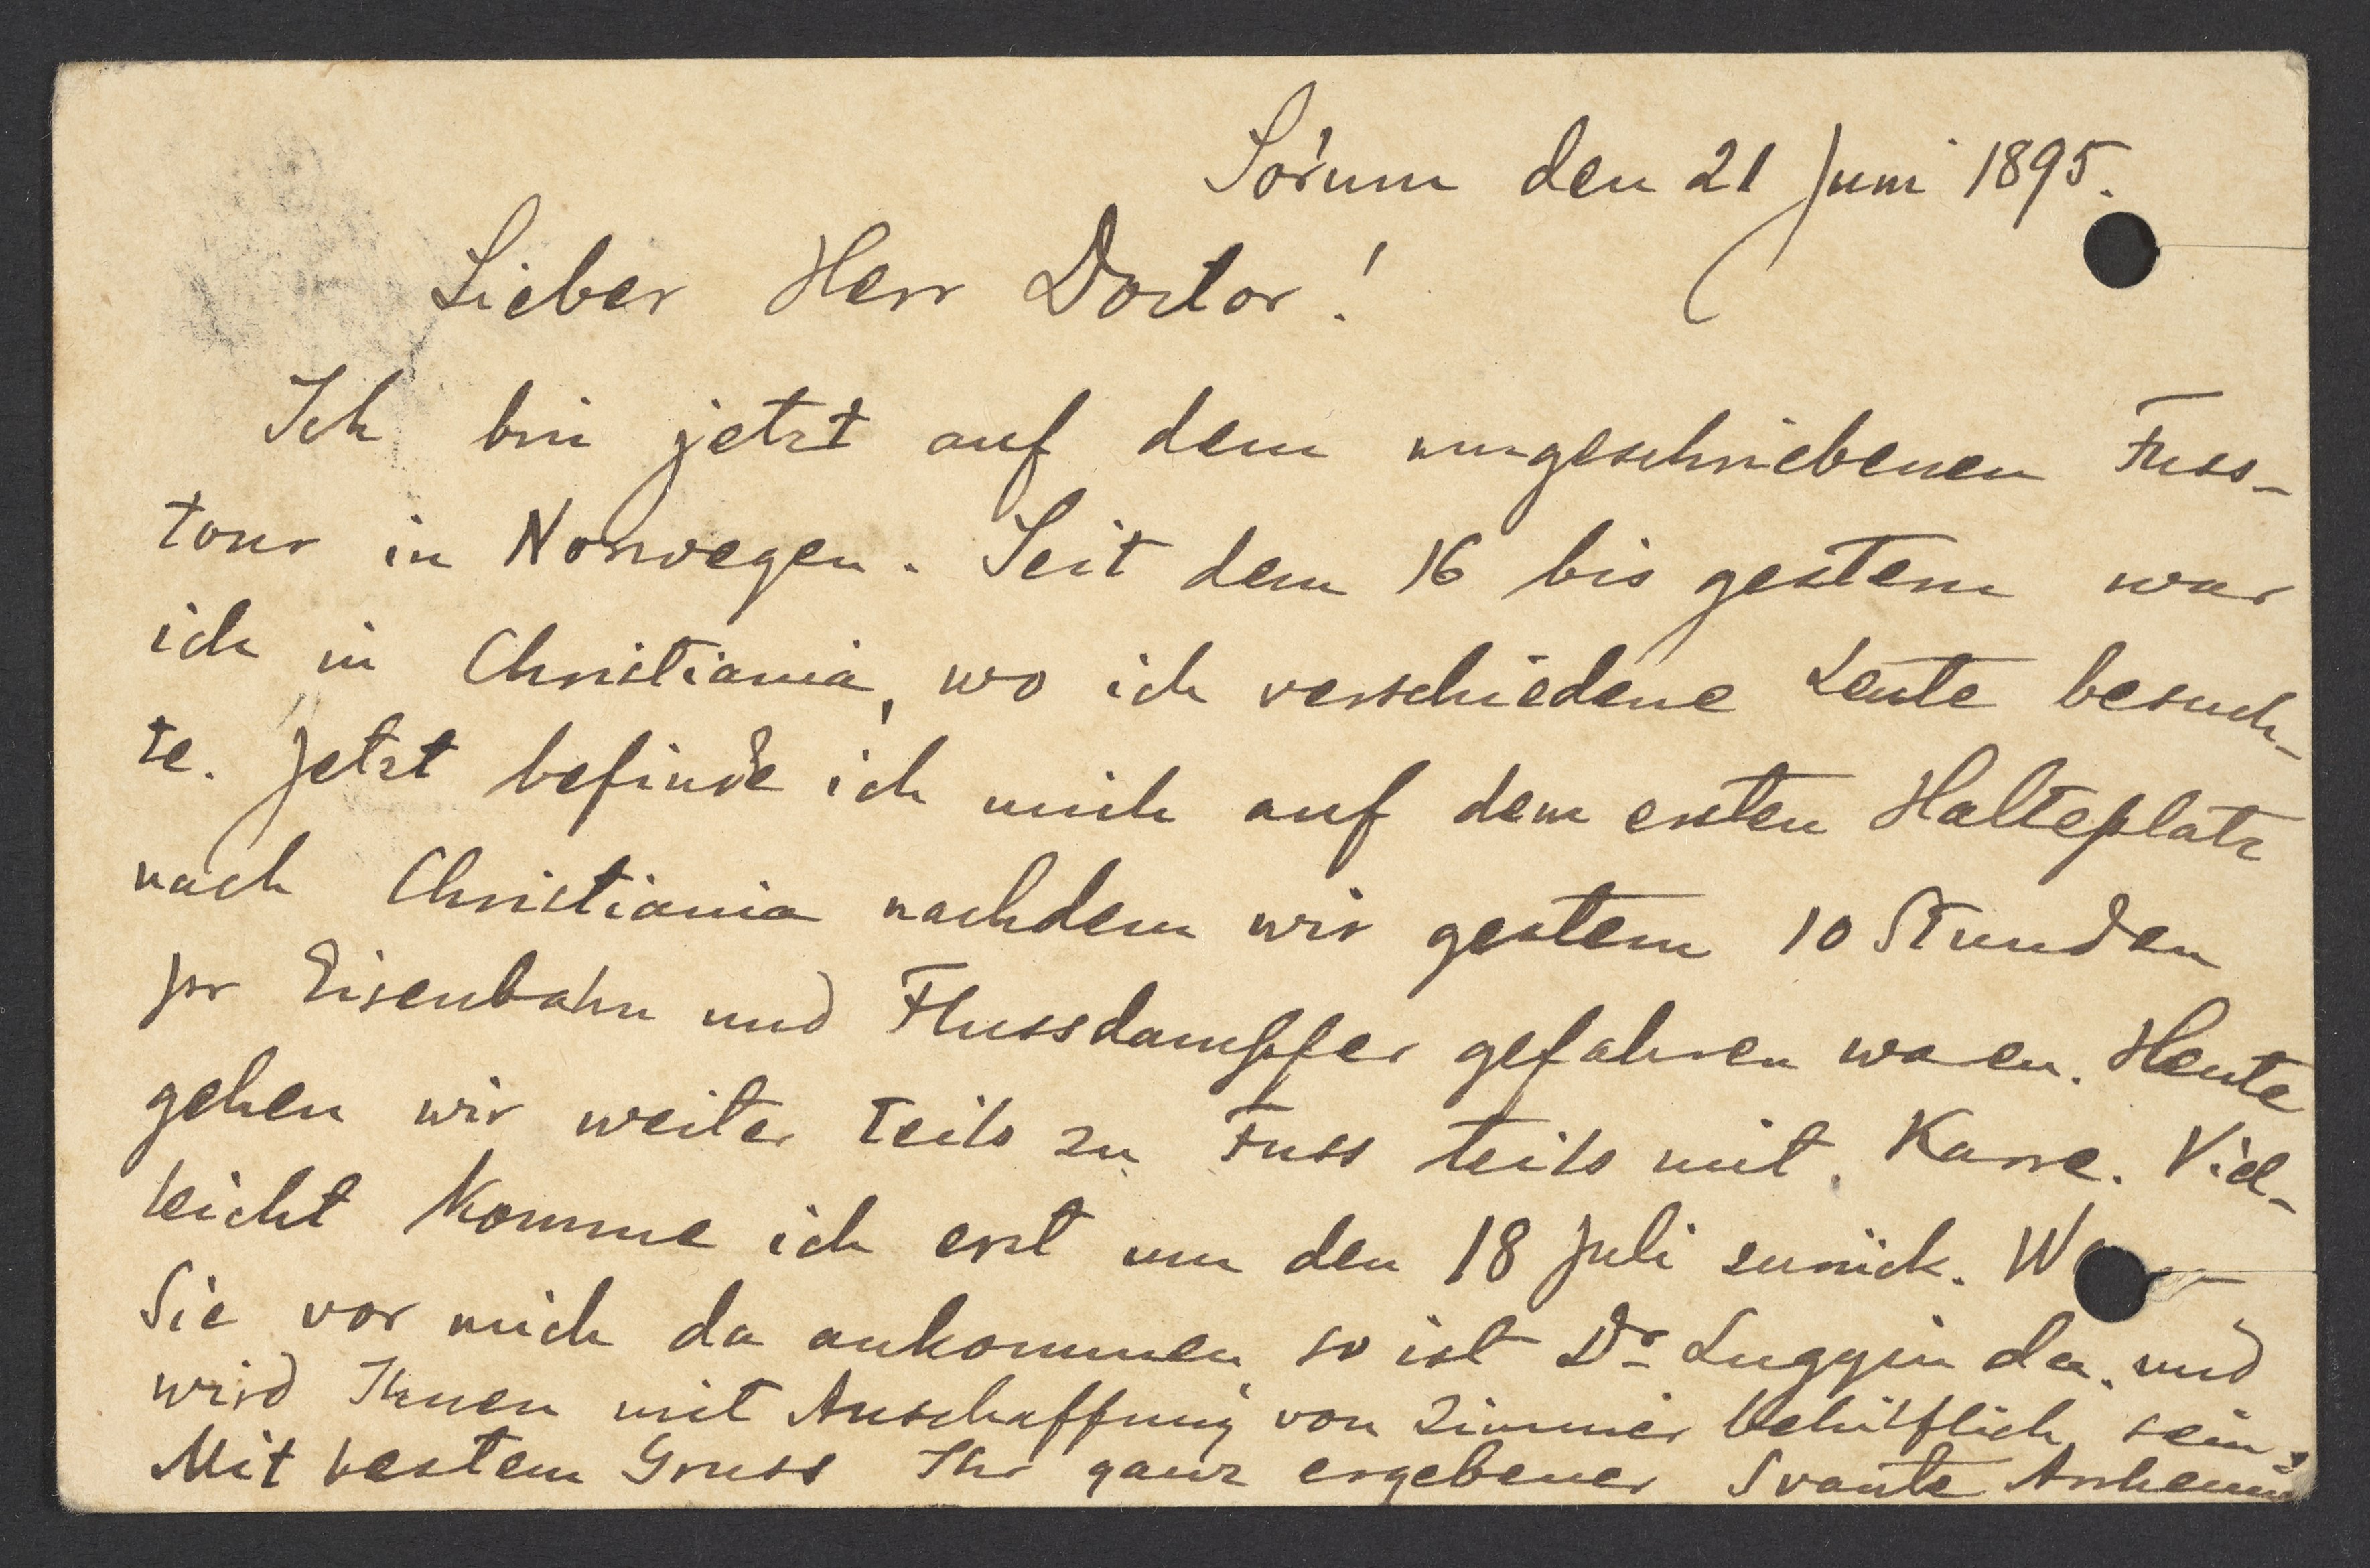 Sörum den 21 Juni 1895.
Lieber Herr Doctor!
Ich bin jetzt auf dem umgeschriebenen Fuss-
tour in Norwegen. Seit dem 16 bis gestern war
ich in Christiania, wo ich verschiedene Leute besuch-
te. Jetzt befinde ich mich auf dem ersten Halteplatz
nach Christiania nachdem wir gestern 10 Stunden
pr Eisenbahn und Flussdampfer gefahren waren. Heute
gehen wir weiter teils zu Fuss teils mit Karre. Viel-
leicht komme ich erst um den 18 Juli zurück.
Sie vor mich da ankommen, so ist Dr Luggin da und
wird Ihnen mit Anschaffung von Zimmer behülflich sein.
Mit bestem Gruss Ihr ganz ergebener Svante Arrhenius